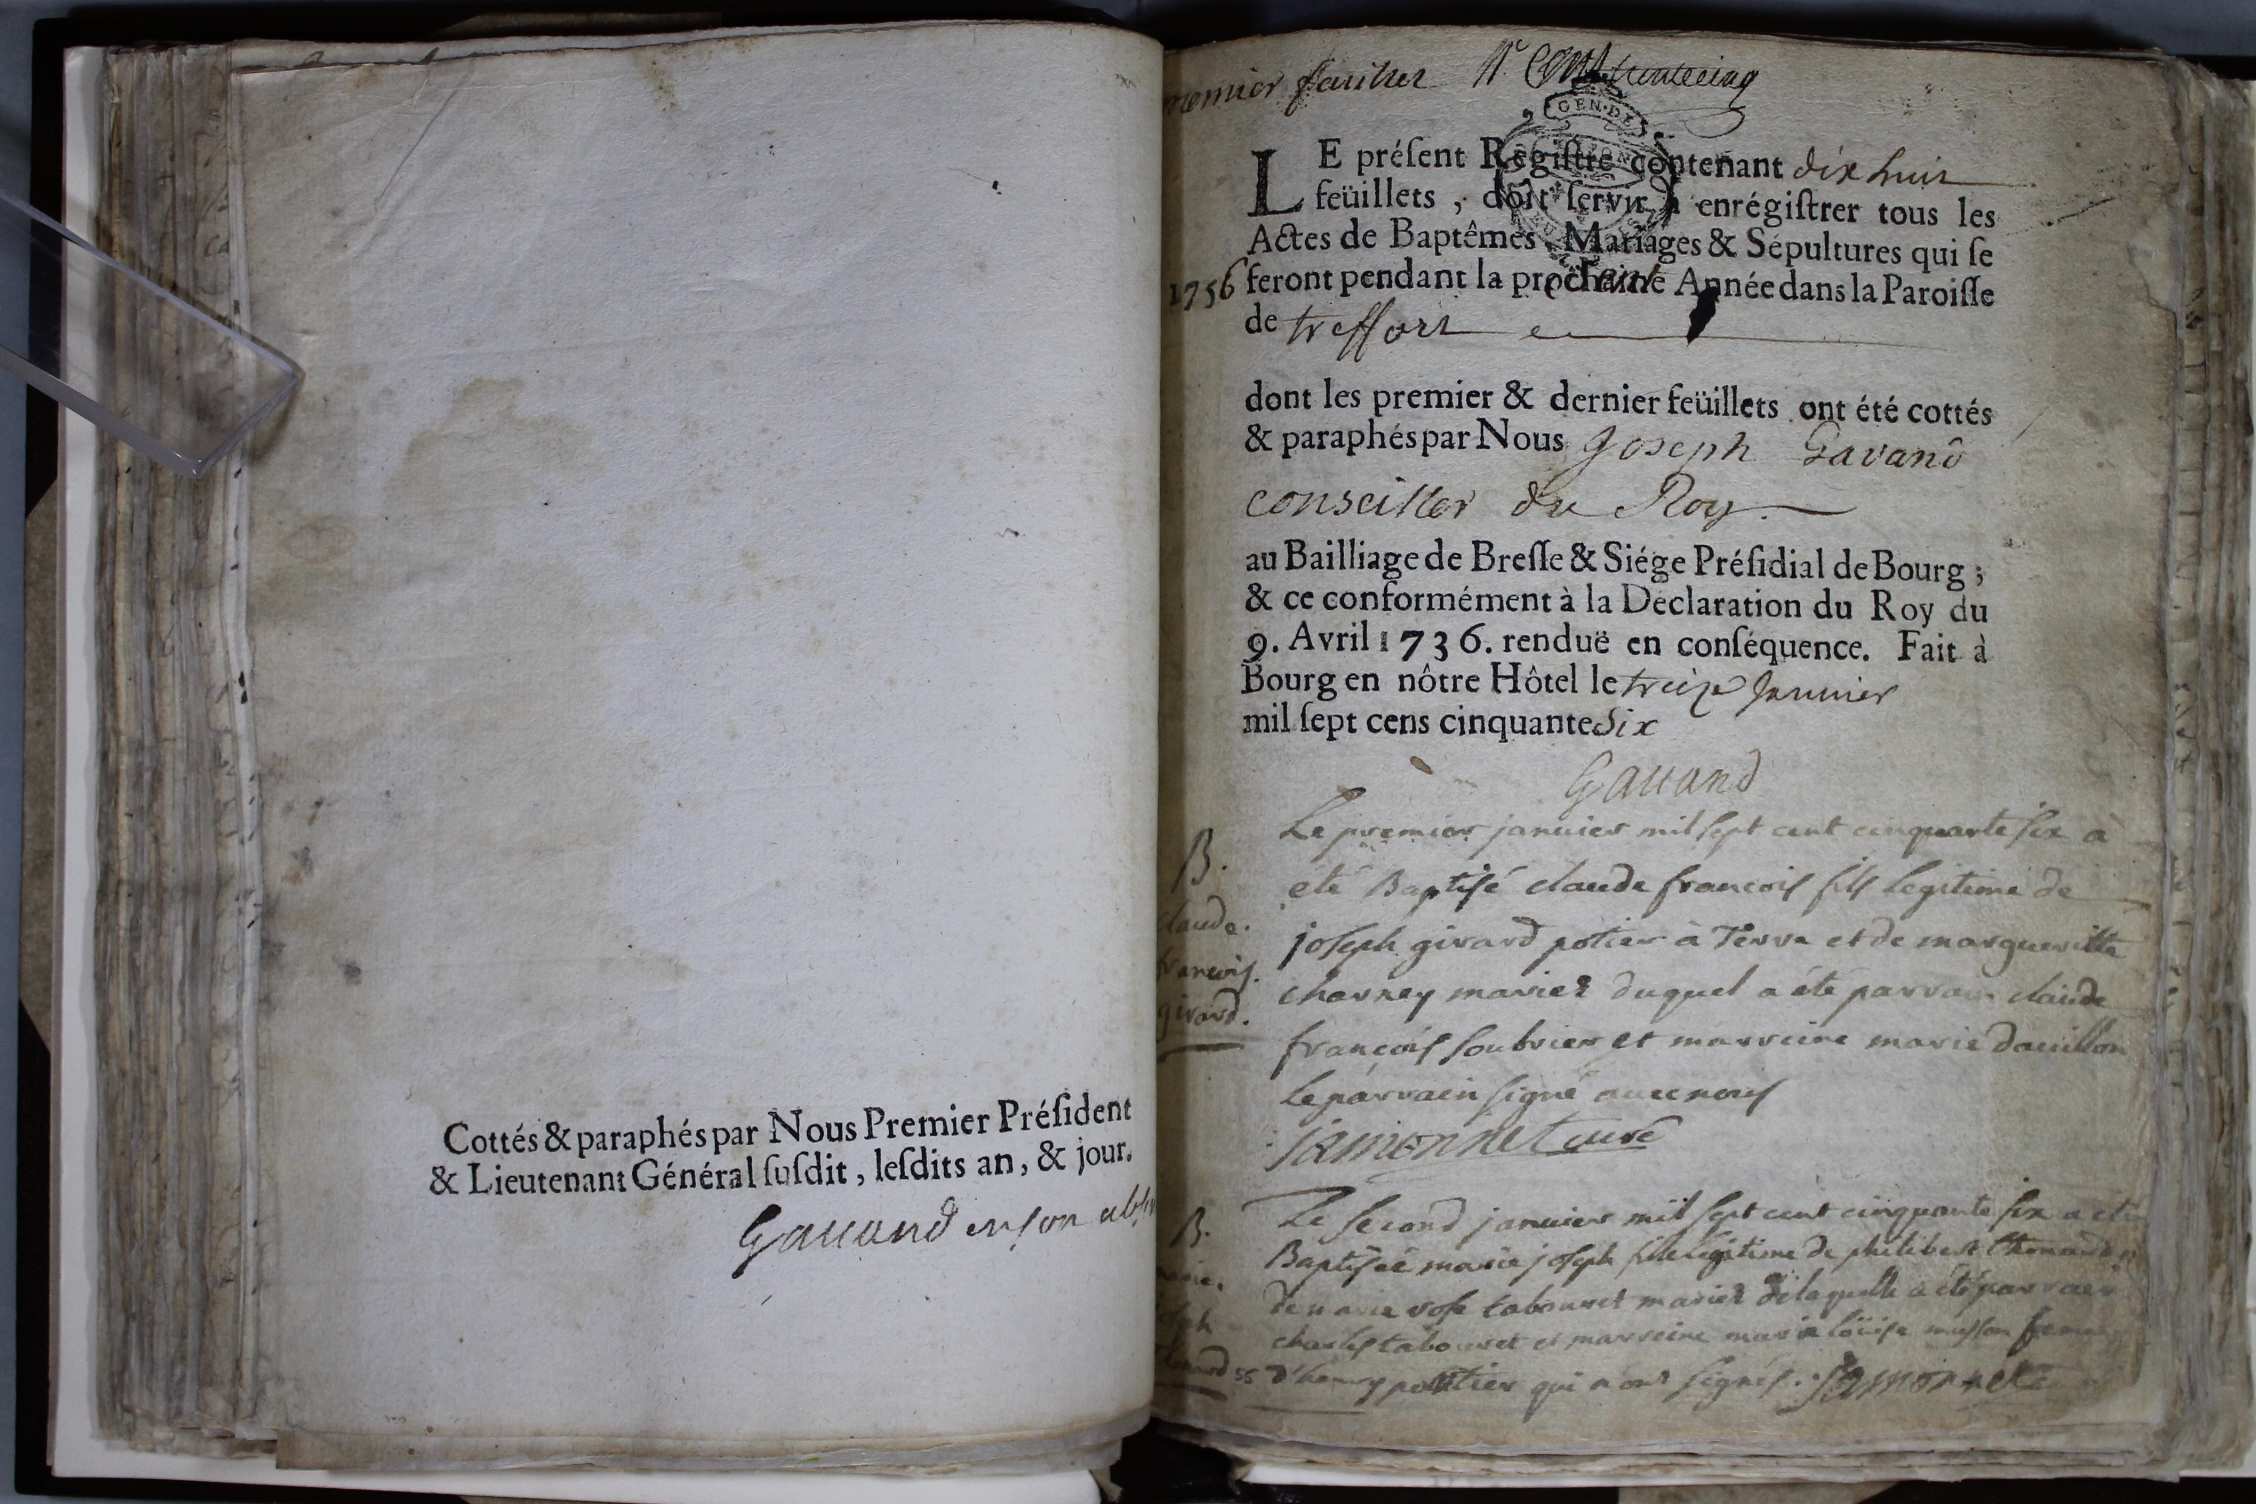 Cottés & paraphés par Nous Premier Préſident
& Lieutenant Général ſuſdit, leſdits an, & jour.
Gauand en son
premier feuillet Nº Cent trentecinq
GEN. DE
LE préſent Régiſtre contenant dix huit
feüillets, doit ſervir à enrégiſtrer tous les
Actes de Baptêmes, Mariages & Sépultures qui ſe
1756 feront pendant la prochaine Année dans la Paroiſſe
de treffort
dont les premier & dernier feüillets ont été cottés
& paraphés par Nous Joseph Gavand
conseiller du Roy
au Bailliage de Breſſe & Siége Préſidial de Bourg;
& ce conformément à la Déclaration du Roy du
9. Avril 1736. renduë en conſéquence. Fait à
Bourg en nôtre Hôtel le treize Januier
mil ſept cens cinquante Six
Gauand
B.
claude.
francois.
girard.
Le premier januier mil sept cent cinquante six a
eté Baptisé claude francois fils legitime de
joseph girard potier à Terre et de margueritte
charney mariez duquel a été parrain claude
francois soubrier et marreine marie dauillon
le parrain signé auec nous
jamonnet curé
B.
marie.
joseph
Le second januier mil sept cent cinquante six a eté
Baptisée marie joseph fille legitime de philibert thenand
de marie rose tabouret mariez de laquelle a été parrain
charles tabouret et marreine marie loüise musson femme
d'henry pontier qui n'ont signés. jamonnet